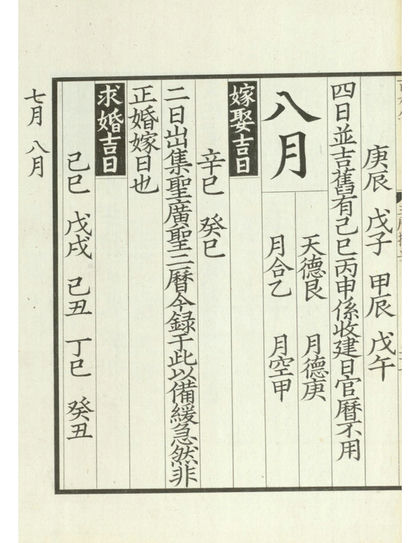 庚辰 戊子 甲辰 戊午
四日並吉舊有己巳丙申係收建日官曆不用
八月
天德艮 月德庚
月合乙 月空甲
嫁娶吉日
辛巳 癸巳
二日出集聖廣聖二曆今録于此以備緩急然非
正婚嫁日也
求婚吉日
己巳 戊戌 己丑 丁巳 癸丑
七月 八月